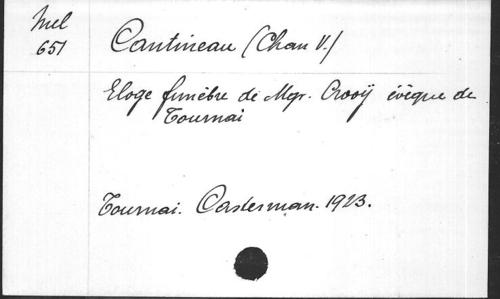 Mel
651
Cantineau (Chan V.)
Eloge funèbre de Mgr. Crooÿ évêque de
Tournai
Tournai. Casterman. 1923.